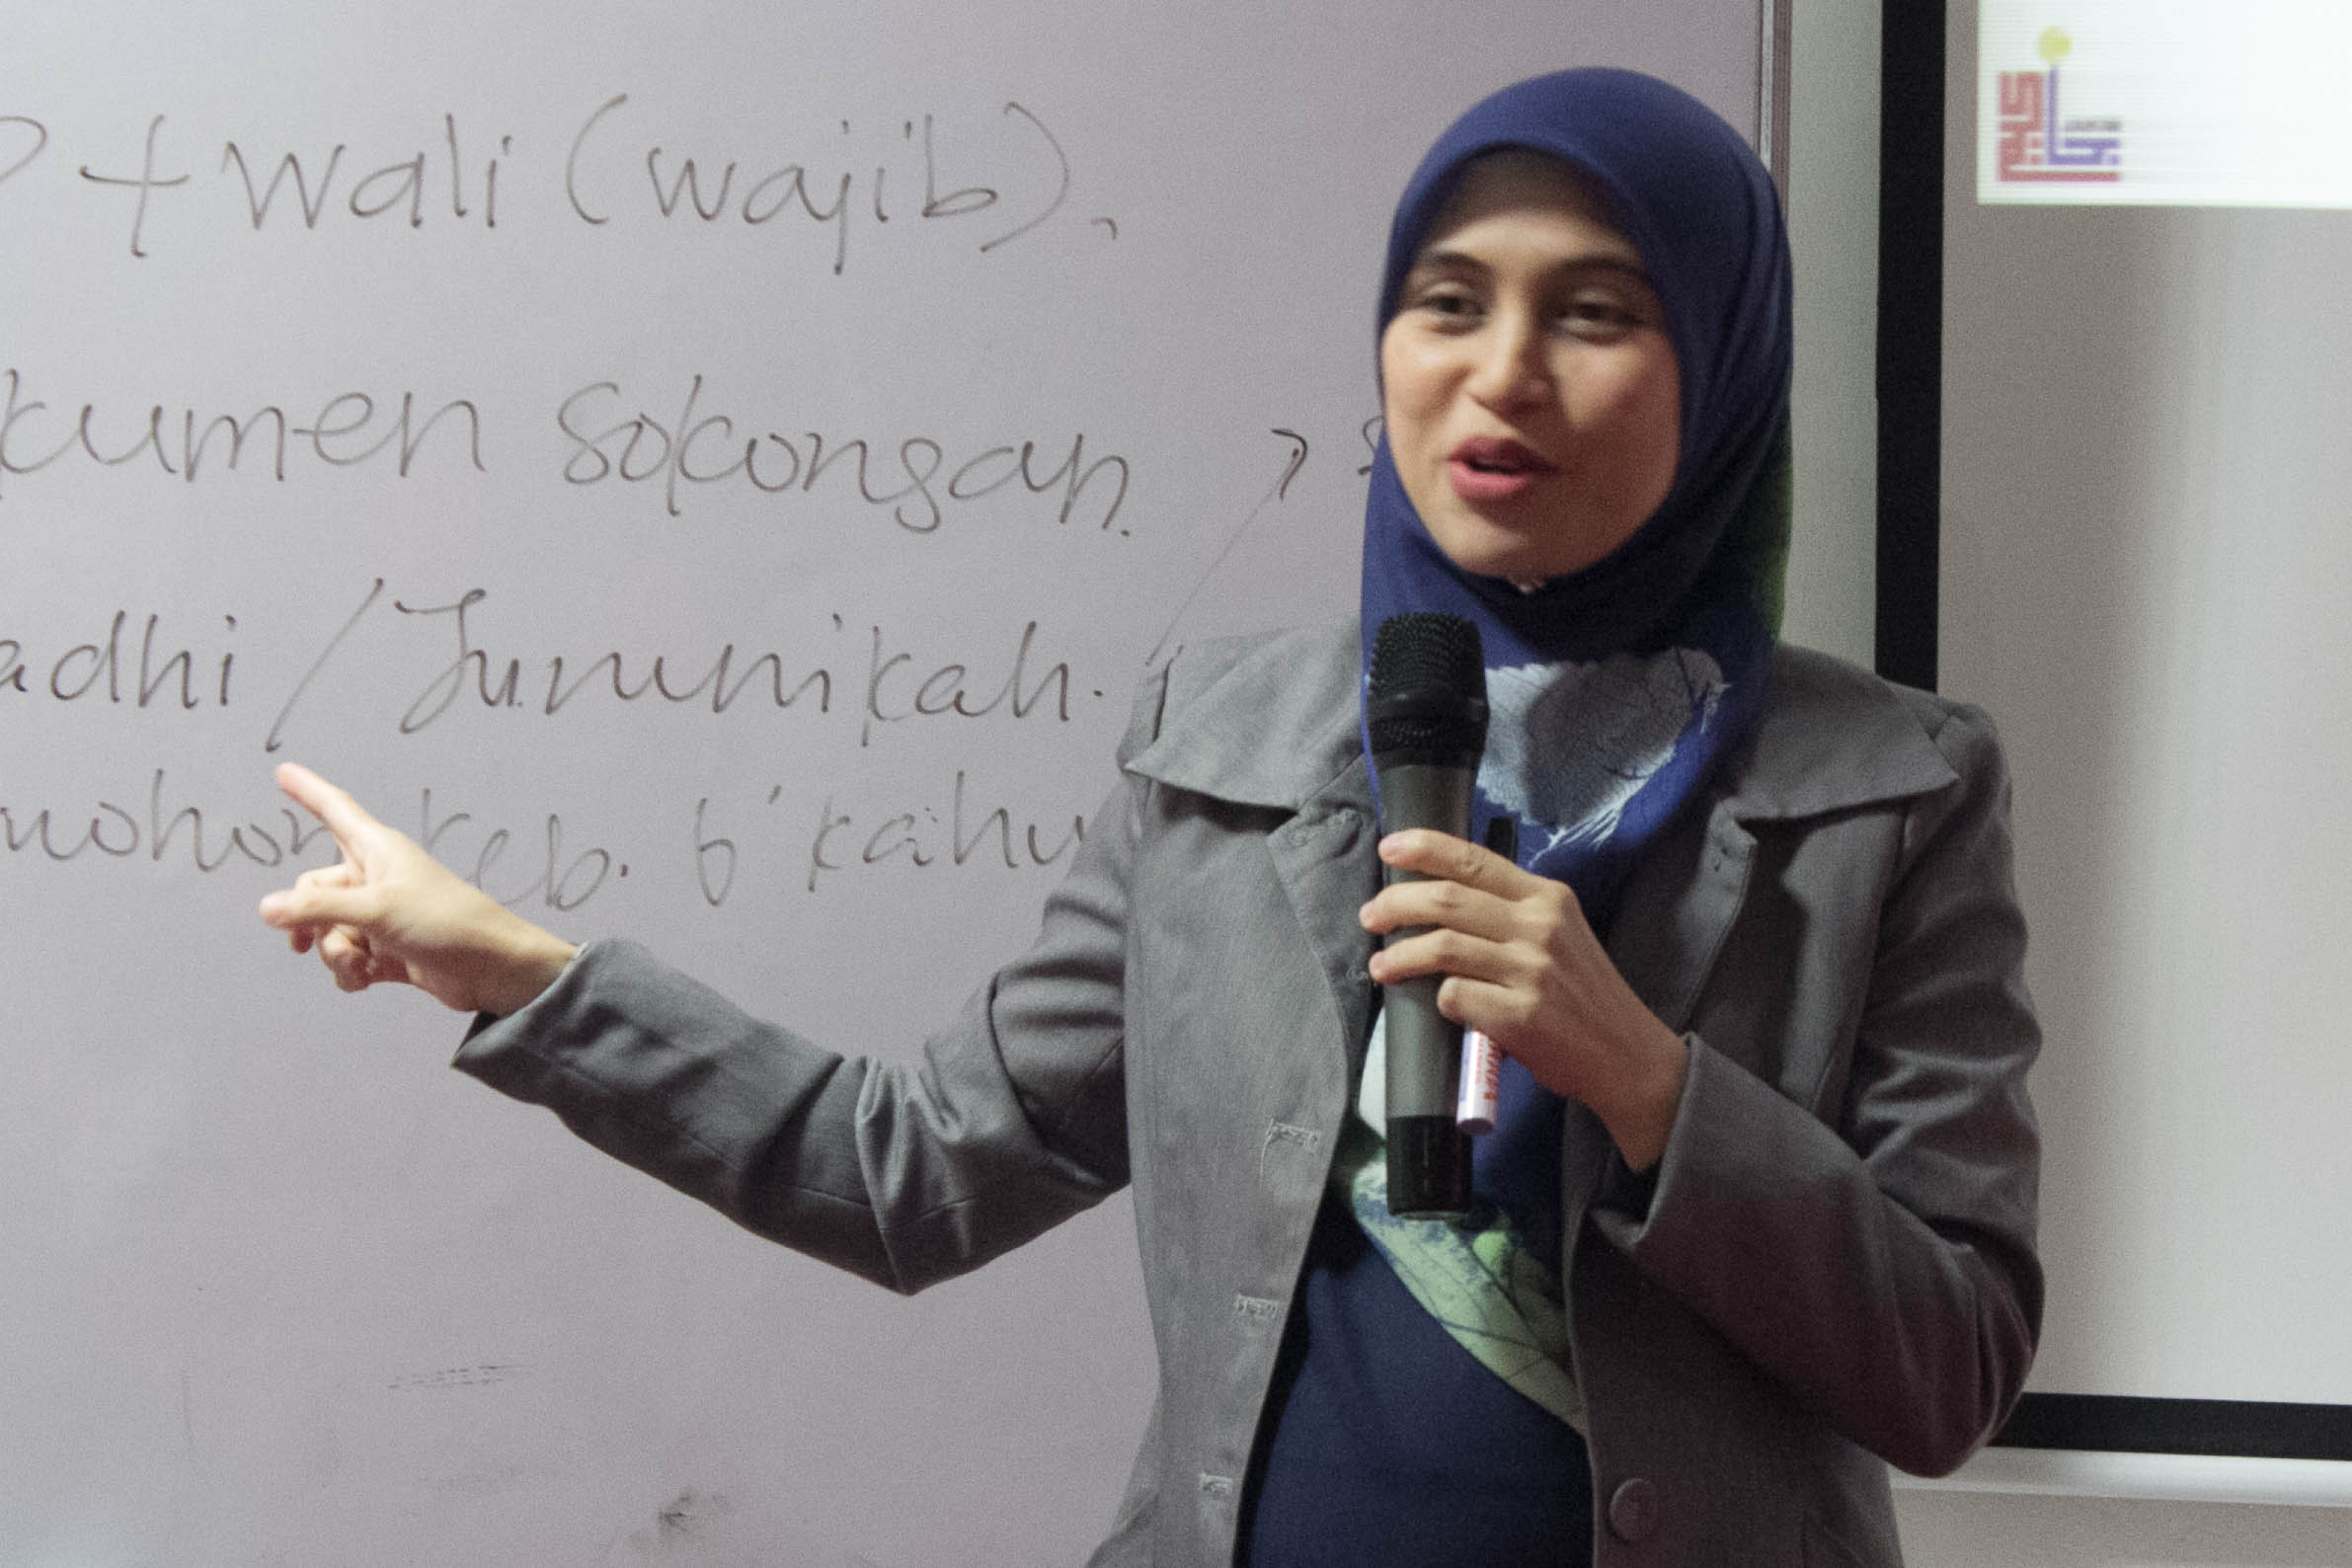 + wali (wajib).
kumen sokongan.
adhi / Jurunikah.
mohon keb. b' kahw